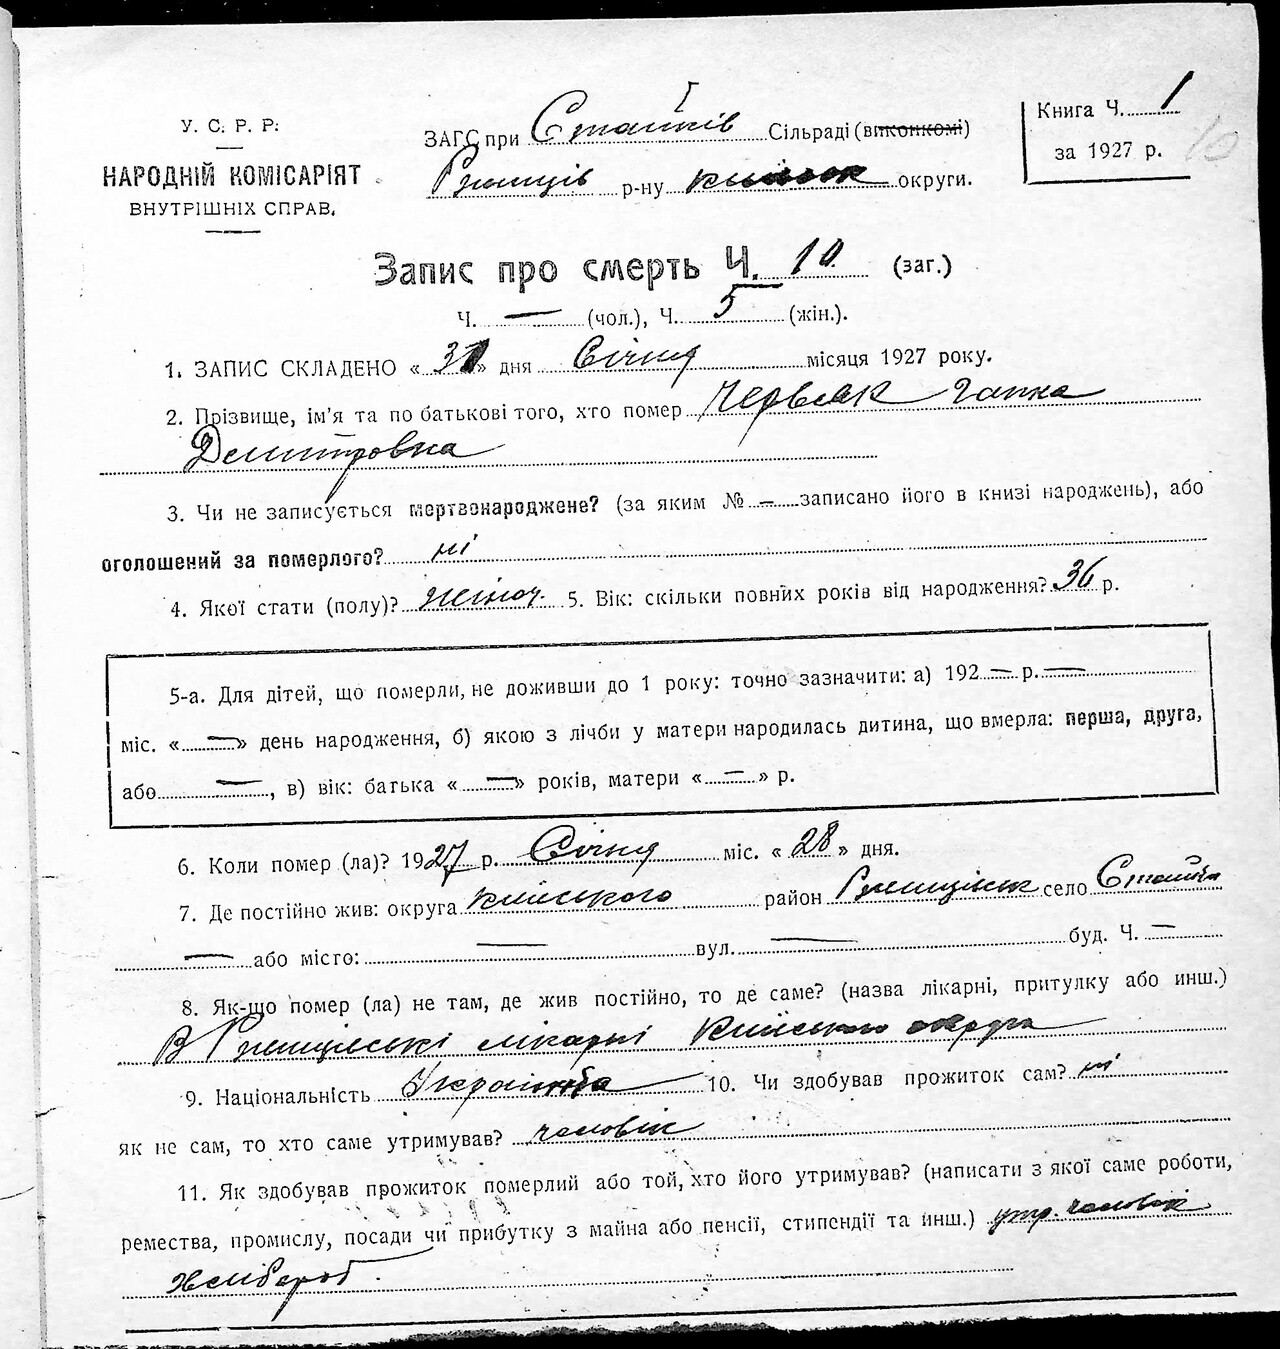 У. С. Р. Р.
НАРОДНІЙ КОМІСАРІЯТ
ВНУТРІШНІХ СПРАВ.
ЗАГС при Стайків Сільраді (виконкомі)
Ржищів р-ну київськ округи.
Книга Ч. 1
за 1927 р.
10
Запис про смерть Ч. 10 (заг.)
Ч. — (чол.), Ч. 5 (жін.).
1. ЗАПИС СКЛАДЕНО « 31 » дня Січня місяця 1927 року.
2. Прізвище, ім'я та по батькові того, хто помер Червяк Гапка
Демитровна
3. Чи не записується мертвонароджене? (за яким № — записано його в книзі народжень), або
оголошений за померлого? ні
4. Якої стати (полу)? жіноч. 5. Вік: скільки повних років від народження? 36 р.
5-а. Для дітей, що померли, не доживши до 1 року: точно зазначити: а) 192 — р. —
міс. « — » день народження, б) якою з лічби у матери народилась дитина, що вмерла: перша, друга,
або —, в) вік: батька « — » років, матери « — » р.
6. Коли помер (ла)? 1927 р. Січня міс. « 28 » дня.
7. Де постійно жив: округа київського район Ржищівськ село Стайки
— або місто: — вул. — буд. Ч. —
8. Як-що помер (ла) не там, де жив постійно, то де саме? (назва лікарні, притулку або инш.)
В Ржищівські лікарні Київського округа
9. Національність Українка 10. Чи здобував прожиток сам? ні
як не сам, то хто саме утримував? чоловік
11. Як здобував прожиток померлий або той, хто його утримував? (написати з якої саме роботи,
ремества, промислу, посади чи прибутку з майна або пенсії, стипендії та инш.) утр. чоловік
хлібороб.